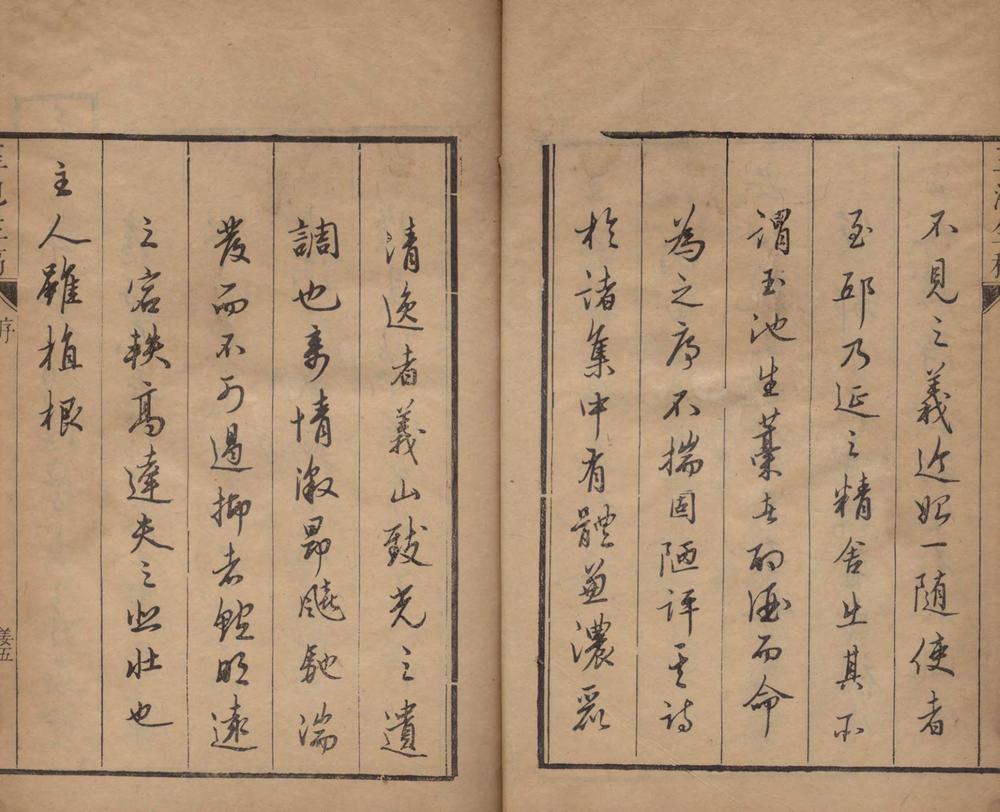 不見之義近始一随使者
至邸乃延之精舍出其所
謂玉池生藁者酌酒而命
為之序不揣固陋評其詩
於諸集中有體兼濃麗
清逸者義山致光之遺
調也情激昂飈馳湍
發而不可遏抑者鮑明遠
之宕軼高達夫之悲壯也
主人雖植根
序
姜五